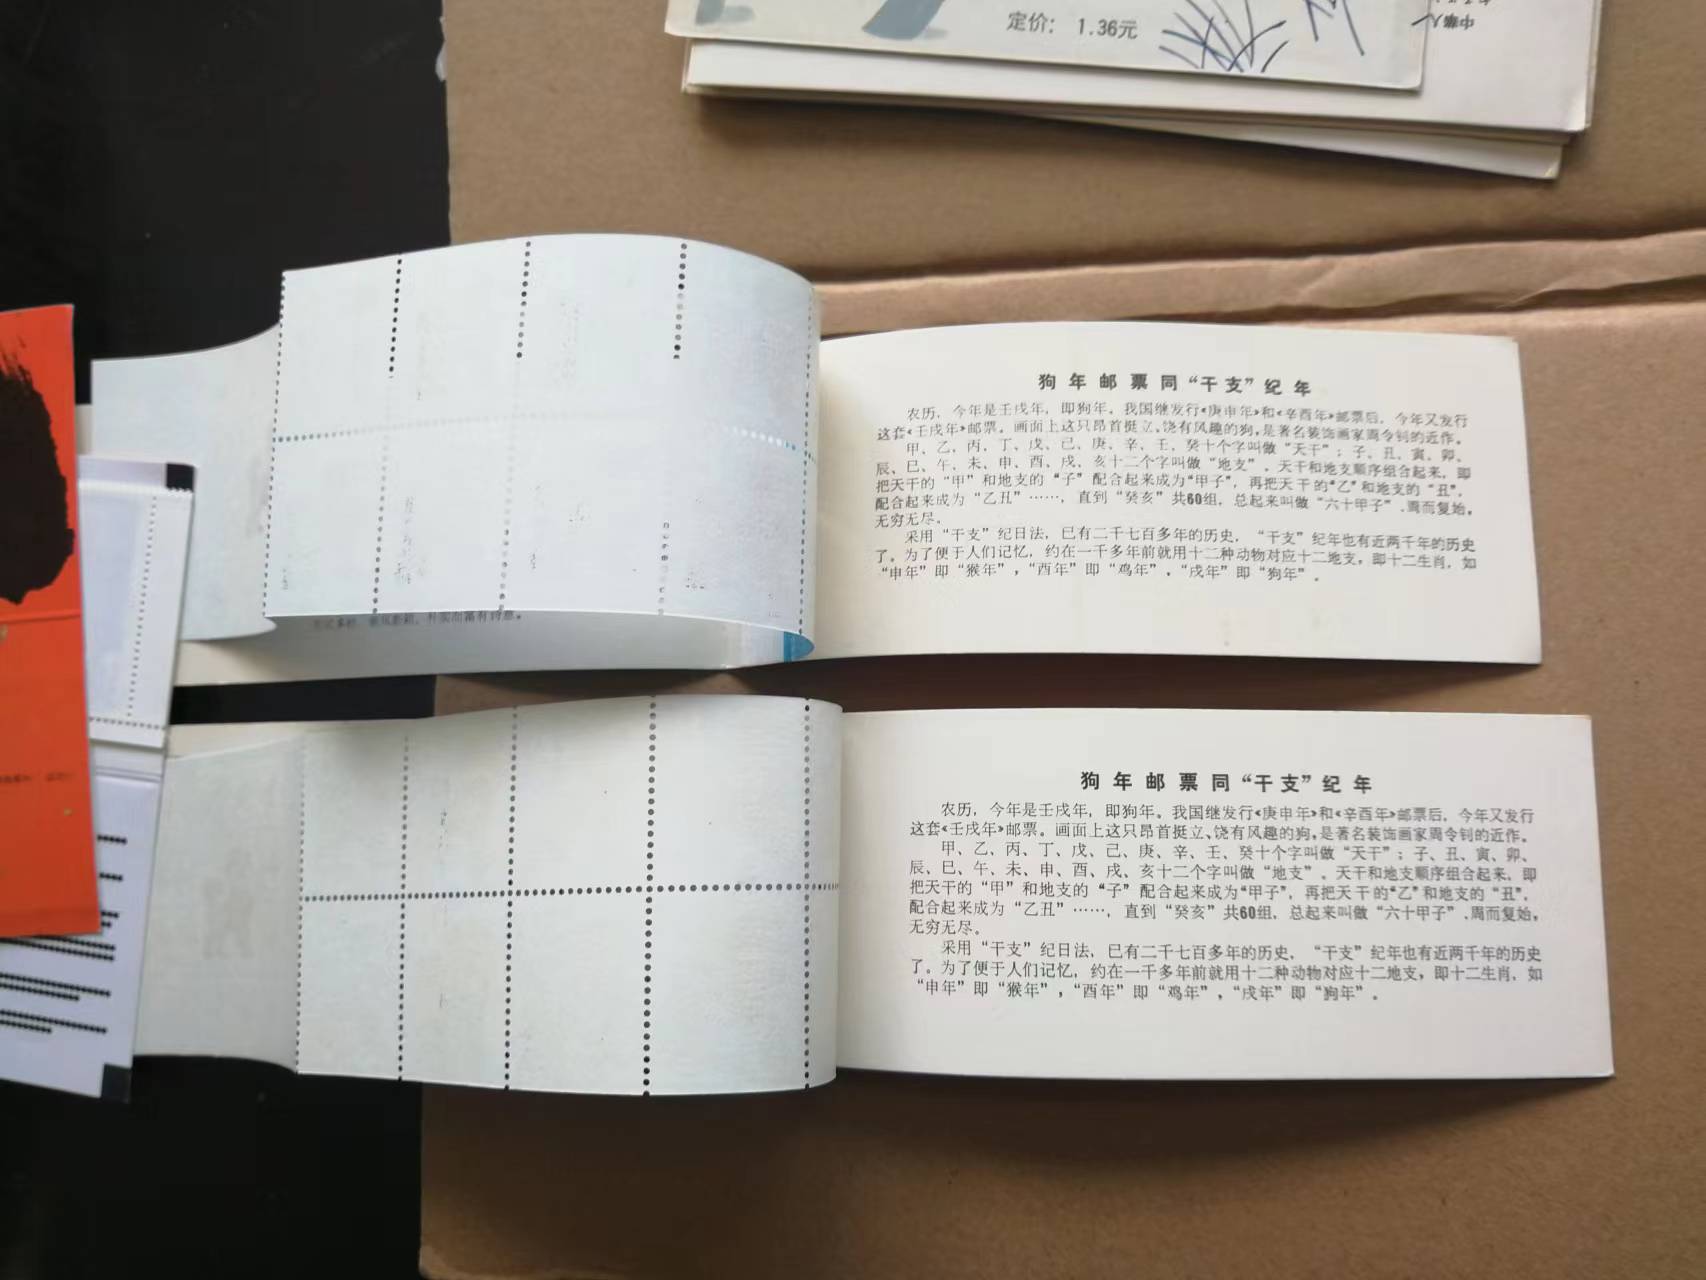 定价： 1.36元
中华人
狗年邮票同“干支”纪年
农历，今年是壬戌年，即狗年。我国继发行《庚申年》和《辛酉年》邮票后，今年又发行
这套《壬戌年》邮票。画面上这只昂首挺立、饶有风趣的狗，是著名装饰画家周令钊的近作。
甲、乙、丙、丁、戊、己、庚、辛、壬、癸十个字叫做“天干”；子、丑、寅、卯、
辰、巳、午、未、申、酉、戌、亥十二个字叫做“地支”。天干和地支顺序组合起来，即
把天干的“甲”和地支的“子”配合起来成为“甲子”，再把天干的“乙”和地支的“丑”，
配合起来成为“乙丑”……，直到“癸亥”共60组，总起来叫做“六十甲子”.周而复始，
无穷无尽。
采用“干支”纪日法，已有二千七百多年的历史，“干支”纪年也有近两千年的历史
了。为了便于人们记忆，约在一千多年前就用十二种动物对应十二地支，即十二生肖，如
“申年”即“猴年”，“酉年”即“鸡年”，“戌年”即“狗年”。
狗年邮票同“干支”纪年
农历，今年是壬戌年，即狗年。我国继发行《庚申年》和《辛酉年》邮票后，今年又发行
这套《壬戌年》邮票。画面上这只昂首挺立、饶有风趣的狗，是著名装饰画家周令钊的近作。
甲、乙、丙、丁、戊、己、庚、辛、壬、癸十个字叫做“天干”；子、丑、寅、卯、
辰、巳、午、未、申、酉、戌、亥十二个字叫做“地支”。天干和地支顺序组合起来，即
把天干的“甲”和地支的“子”配合起来成为“甲子”，再把天干的“乙”和地支的“丑”，
配合起来成为“乙丑”……，直到“癸亥”共60组，总起来叫做“六十甲子”.周而复始，
无穷无尽。
采用“干支”纪日法，已有二千七百多年的历史，“干支”纪年也有近两千年的历史
了。为了便于人们记忆，约在一千多年前就用十二种动物对应十二地支，即十二生肖，如
“申年”即“猴年”，“酉年”即“鸡年”，“戌年”即“狗年”。